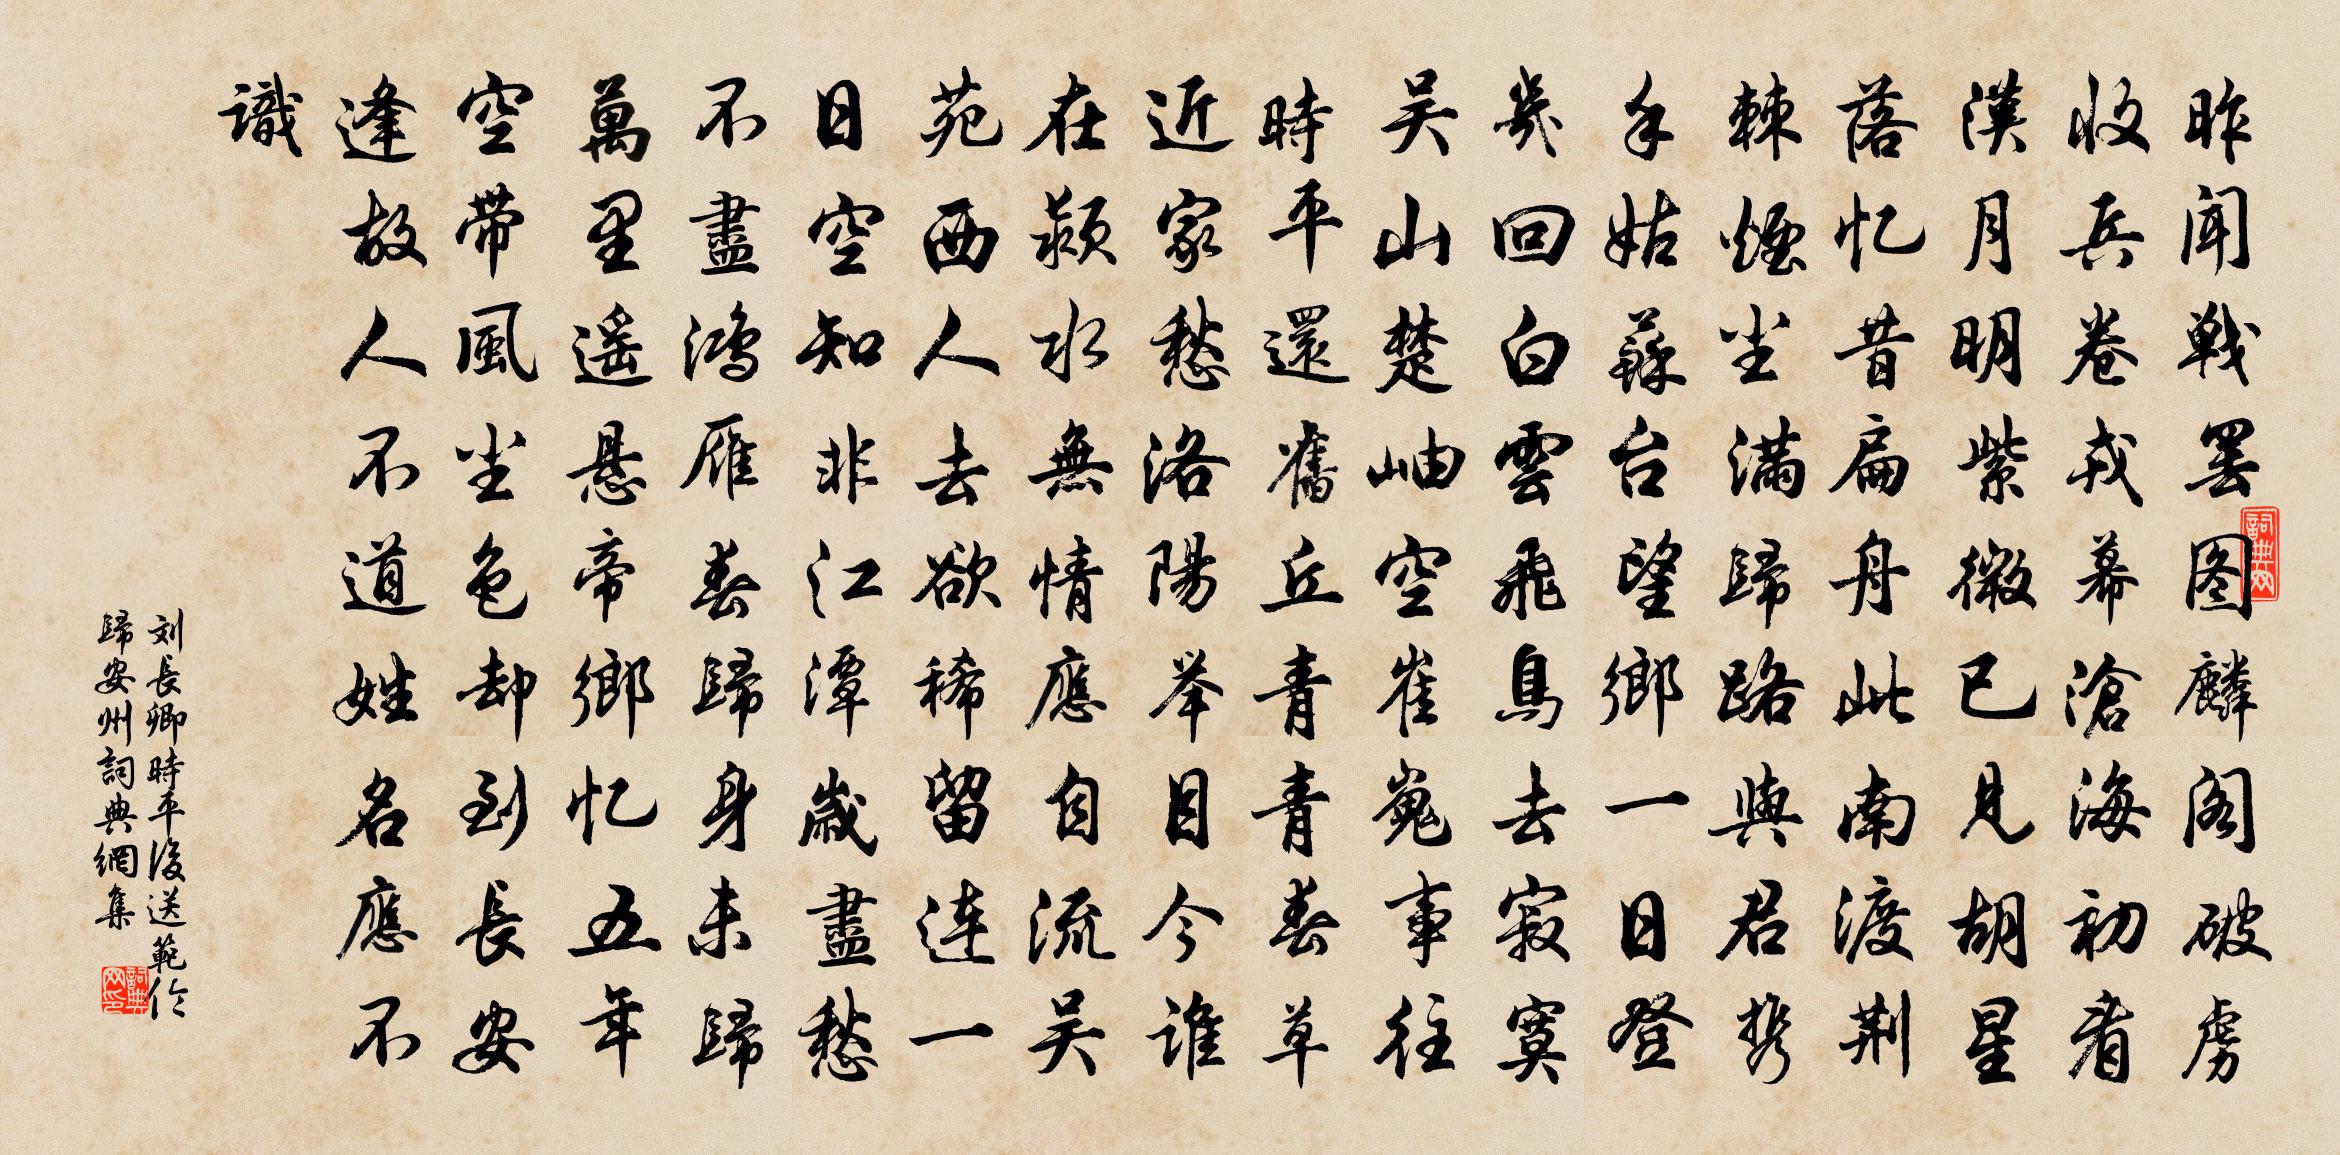 昨闻戰罢图麟阁破虏
收兵卷戎幕滄海初看
漢月明紫微已見胡星
落忆昔扁舟此南渡荆
棘煙尘满歸路與君携
手姑蘇台望鄉一日登
幾回白雲飛鳥去寂寞
吴山楚岫空崔嵬事往
時平還舊丘青青春草
近家愁洛陽举目今谁
在颍水無情應自流吴
苑西人去欲稀留連一
日空知非江潭歲盡愁
不盡鴻雁春歸身未歸
萬里遥悬帝鄉忆五年
空带風尘色却到長安
逢故人不道姓名應不
識
刘長卿時平後送範伦
歸安州詞典網集
詞典网
詞典网印